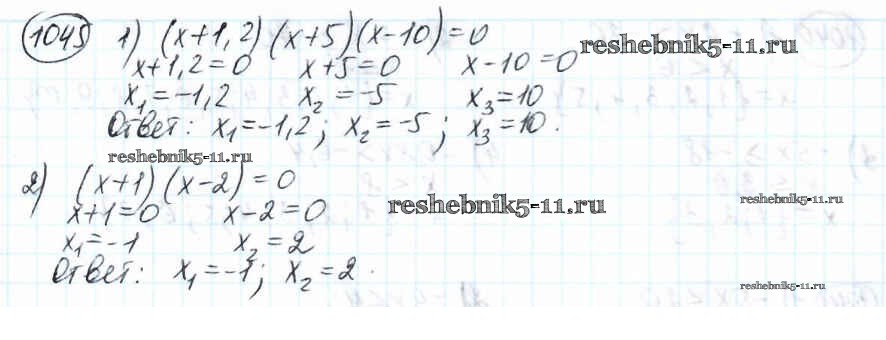 1045 1) (x+1,2)(x+5)(x-10)=0
reshebnik5-11.ru
x+1,2=0 x+5=0 x-10=0
x₁=-1,2 x₂=-5 x₃=10
Ответ: x₁=-1,2; x₂=-5; x₃=10.
reshebnik5-11.ru
2) (x+1)(x-2)=0
reshebnik5-11.ru
x+1=0 x-2=0
reshebnik5-11.ru
x₁=-1 x₂=2
Ответ: x₁=-1; x₂=2.
reshebnik5-11.ru